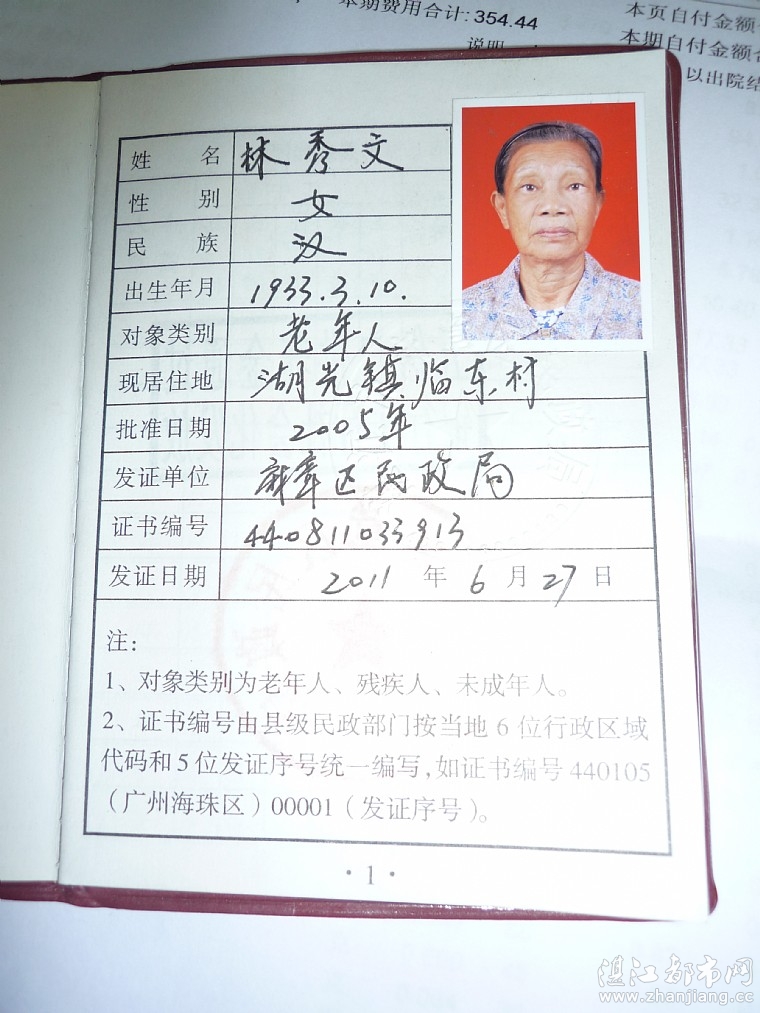 本期费用合计: 354.44
本页自付金额
本期自付金额
说明
以出院结
姓 名 林秀文
性 别 女
民 族 汉
出生年月 1933.3.10.
对象类别 老年人
现居住地 湖光镇临东村
批准日期 2005年
发证单位 麻章区民政局
证书编号 440811033913
发证日期 2011 年 6 月 27 日
注:
1、对象类别为老年人、残疾人、未成年人。
2、证书编号由县级民政部门按当地6位行政区域
代码和5位发证序号统一编写,如证书编号440105
(广州海珠区)00001(发证序号)。
·1·
湛江都市网
www.zhanjiang.cc